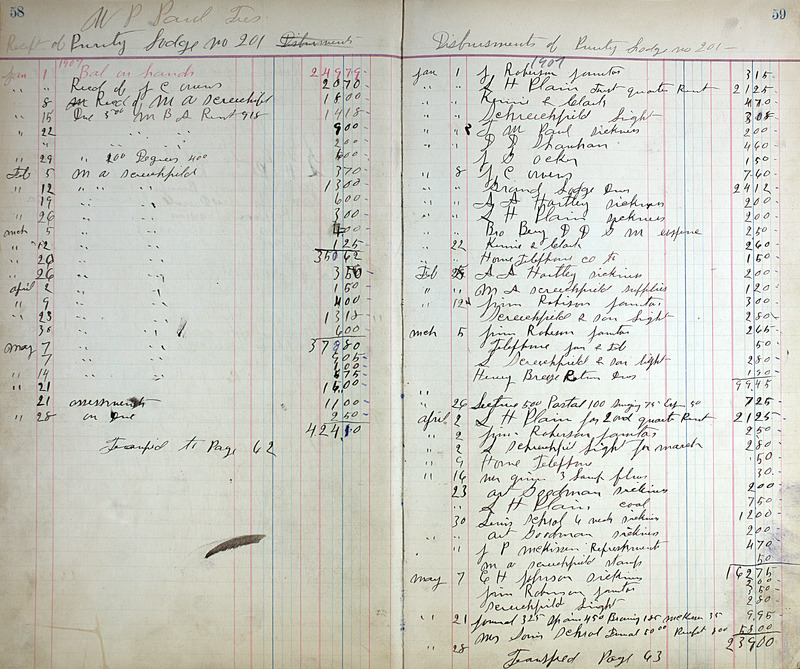 58
W P Paul Tres.
Receipt of Purity Lodge no 201 Disbursments
1907
Jan 1 Bal on hands 249 79
" " Recd of J C owens 20 70
" 8 Recd of M A Screechfield 18 00
" 15 Due 500 M B A Rent 918 14 18
" 22 9 00
2 00
" 29 " 200 Degrees 400 6 00
Feb 5 M A Screechfield 3 70
" 12 " " " 13 00
" 19 " " 6 00
" 26 " " 3 00
mch 5 " " 4 00
" 12 " " 1 25
350 62
" 26 " " 3 50
april 2 " " 1 50
" 9 " " 4 00
" 23 " " 13 18
" 30 " " 6 00
378 80
may 7 " "
7 " "
" 14 " "
" 21 " "
21 assessments 11 00
" 28 on Due 2 50
424
Transfrd to Page 62
59
Disbursments of Purity Lodge no 201
1907
Jan 1 J Roberson Janitor 3 15
" " S H Plain first quarter Rent 21 25
" " Kinnie & Clark 4 70
" " Screechfield Light 3 08
" " J M Paul sickness 2 00
" " D D Shanhan 4 60
" " J S ocker 1 50
" 8 J C owens 7 60
" " Grand Lodge Dues 24 12
" " A A Hartley sickness 2 00
" " S H Plain sickness 2 00
" " Bro Berry D D G M expense 2 50
22 Kinnie & Clark 2 60
" Home Telephone co 1 50
Feb A A Hartley sickness 2 00
" " M A Screechfield supplies 1 20
" 12 Jim Robison Janitor 3 00
Screechfield & son Light 2 80
mch 5 Jim Roberson Janitor 2 65
" Telephone Jan & Feb 50
" S Screechfield & son light 2 80
Henry Breeze Return Dues 1 90
99 45
" 26 Lecture 500 Postal 100 7 25
april 2 S H Plain for 2ond quarter Rent 21 25
" 2 Jim Roberson Janitor 2 50
" 2 S Screechfield Light for march 2 80
" 9 Home Telephone 50
" 16 3 Lamp flues 30
23 art Goodman sickness 2 00
" S H Plain coal 7 50
30 Louis Schrol 6 weeks sickness 12 00
" " art Goodman sickness 2 00
" J P McKissen Refreshments 4 70
M A Screechfield stamps 50
162 75
may 7 C H Johnson sickness 2 00
Jim Roberson Janitor 3 50
Screechfield Light 2 80
" " 21 Journal 325 Spain 450 McKissen 35 9 95
Mrs Louis Schrol Funeral 50 00 53 00
" 28 239 00
Transfred Page 63